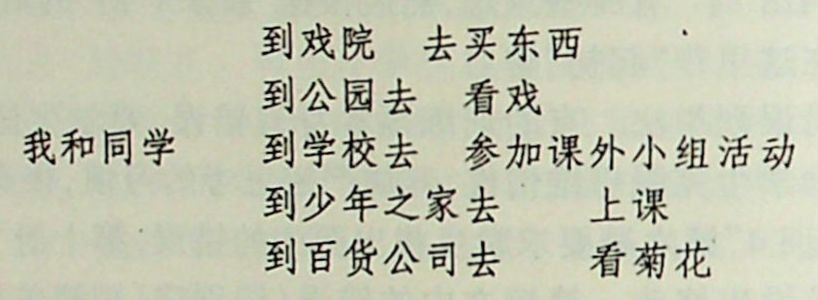 到戏院 去买东西
到公园去 看戏
我和同学 到学校去 参加课外小组活动
到少年之家去 上课
到百货公司去 看菊花